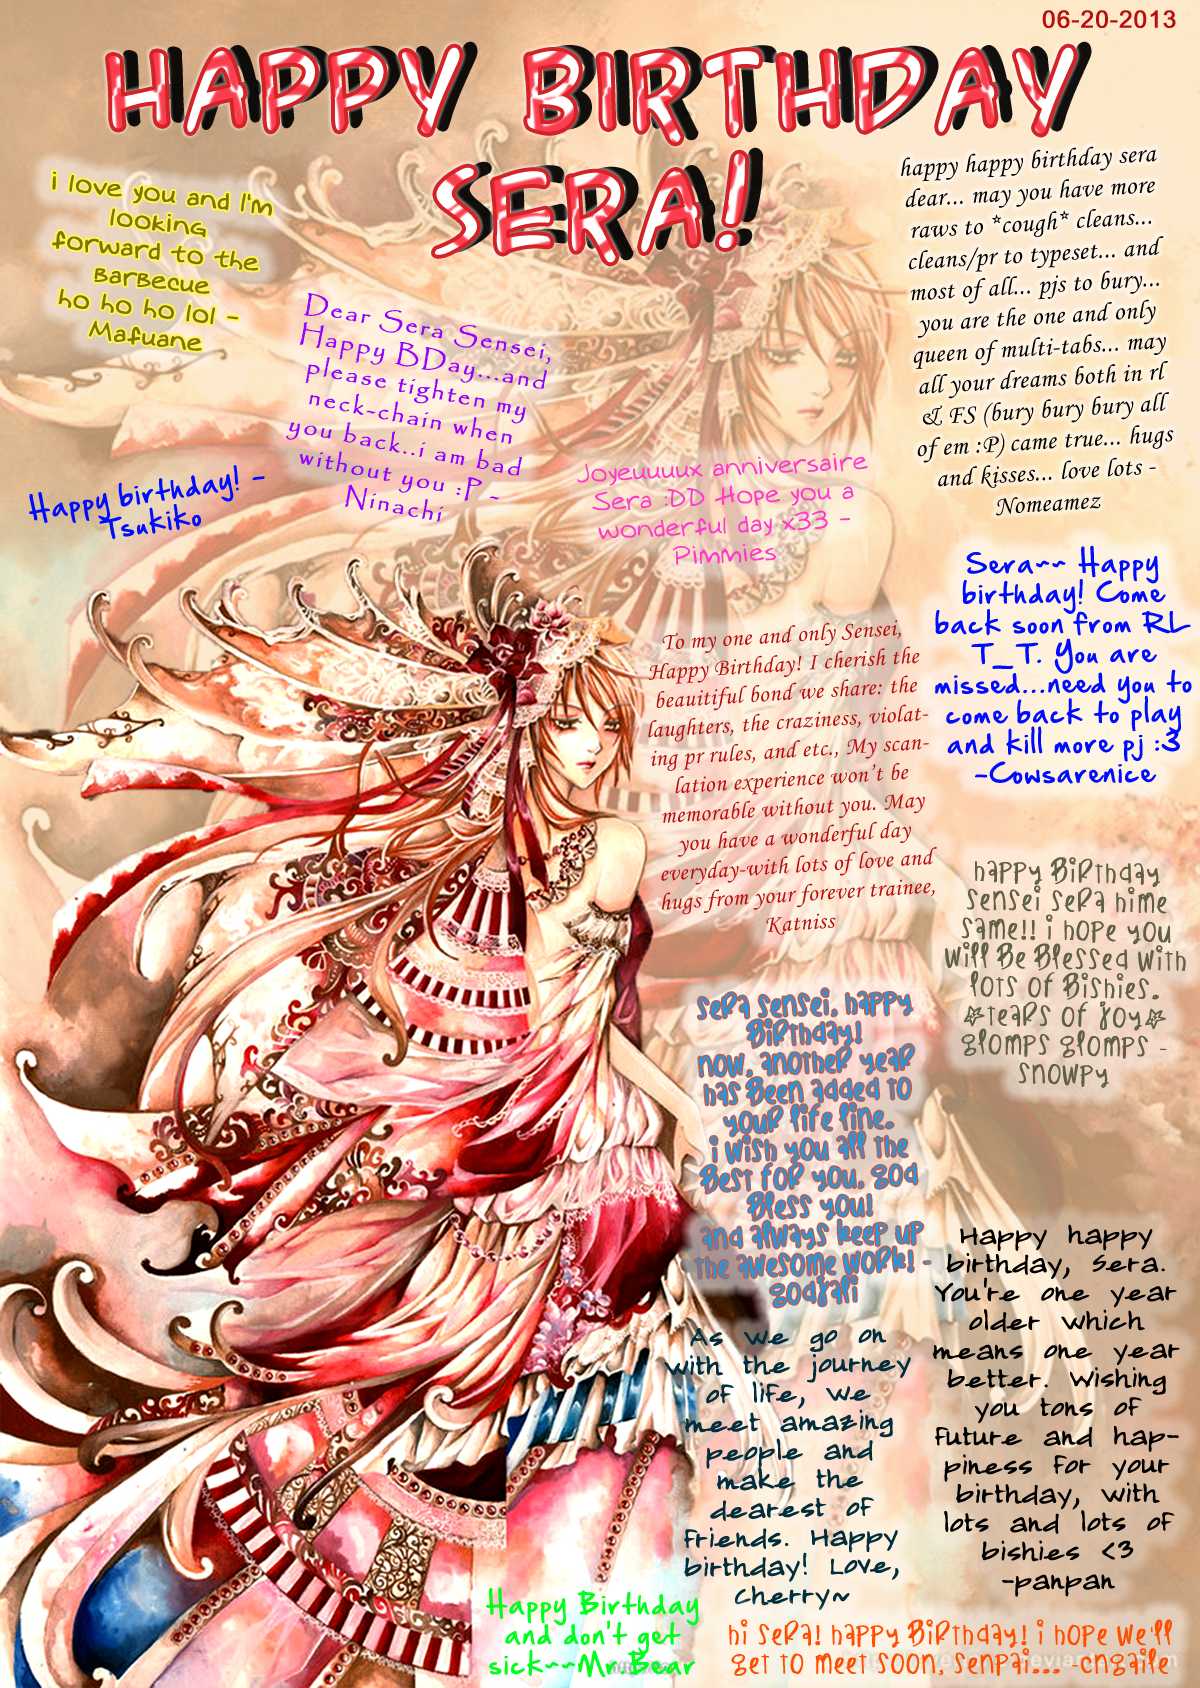 06-20-2013
HAPPY BIRTHDAY
SERA!
i love you and I'm
looking
forward to the
Barbecue
ho ho ho lol -
Mafuane
Dear Sera Sensei,
Happy BDay...and
please tighten my
neck-chain when
you back..i am bad
without you :P -
Ninachi
happy happy birthday sera
dear... may you have more
raws to *cough* cleans...
cleans/pr to typeset... and
most of all... pjs to bury...
you are the one and only
queen of multi-tabs... may
all your dreams both in rl
& FS (bury bury bury all
of em :P) came true... hugs
and kisses... love lots -
Nomeamez
Happy birthday! -
Tsukiko
Joyeuuuux anniversaire
Sera :DD Hope you a
wonderful day x33 -
Pimmies
Sera~~ Happy
birthday! Come
back soon from RL
T_T. You are
missed...need you to
come back to play
and kill more pj :3
-Cowsarenice
To my one and only Sensei,
Happy Birthday! I cherish the
beauitiful bond we share: the
laughters, the craziness, violat-
ing pr rules, and etc., My scan-
lation experience won't be
memorable without you. May
you have a wonderful day
everyday-with lots of love and
hugs from your forever trainee,
Katniss
happy Birthday
sensei sera hime
same!! i hope you
will be blessed with
lots of bishies.
*tears of joy*
glomps glomps -
snowpy
sera sensei, happy
Birthday!
now, another year
has been added to
your life line.
i wish you all the
best for you. god
bless you!
and always keep up
the awesome work! -
godjali
Happy happy
birthday, Sera.
You're one year
older which
means one year
better. Wishing
you tons of
future and hap-
piness for your
birthday, with
lots and lots of
bishies <3
-panpan
As we go on
with the journey
of life, we
meet amazing
people and
make the
dearest of
friends. Happy
birthday! Love,
Cherry~
Happy Birthday
and don't get
sick~~Mr.Bear
hi sera! happy birthday! i hope we'll
get to meet soon, senpai... -cngaile